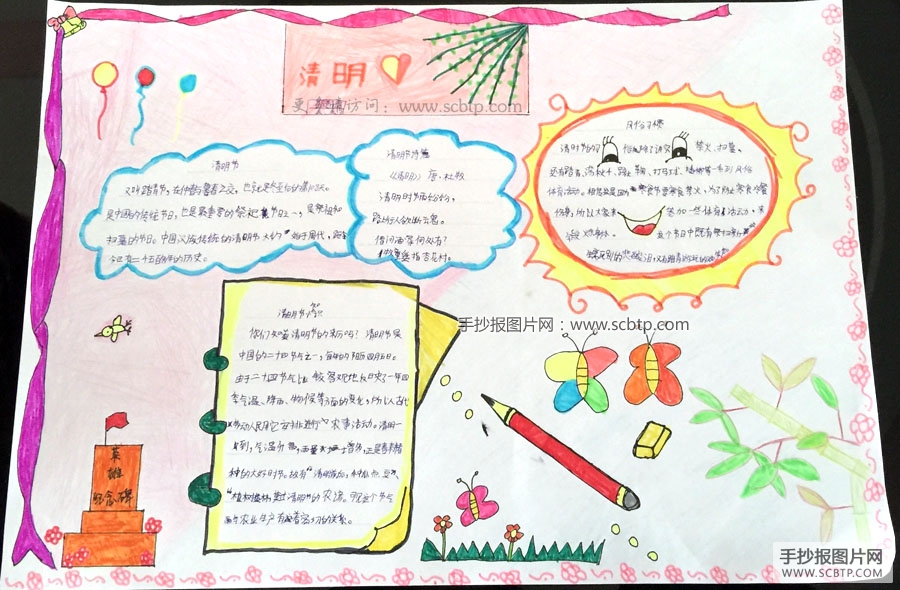 清明
更多请访问：www.scbtp.com
清明节
又叫踏青节，在仲春与暮春之交，也就是冬至后的第108天。
是中国的传统节日，也是最重要的祭祀节日之一，是祭祖和
扫墓的节日。中国汉族传统的清明节大约始于周代，距
今已有二千五百多年的历史。
清明节诗篇
《清明》 唐·杜牧
清明时节雨纷纷，
路上行人欲断魂。
借问酒家何处有？
牧童遥指杏花村。
风俗习惯
清明节的习俗
禁火、扫墓，
还有踏青、荡秋千、蹴鞠、打马球、插柳等一系列风俗
体育活动。
寒食节要寒食禁火，为了防止寒食冷餐
伤身，所以大家来
参加一些体育活动，来
锻炼身体。
这个节日中既有祭扫新坟
生离死别的悲酸泪，又有踏青游玩的欢笑声
手抄报图片网：www.scbtp.com
清明节小常识
你们知道清明节的来历吗？清明节是
中国的二十四节气之一，每年的阳历四月五日。
由于二十四节气比较客观地反映了一年四
季气温、降雨、物候等方面的变化，所以古代
劳动人民用它安排进行农事活动。清明一
到，气温升高，雨量增多，正是春耕春
种的大好时节。故有“清明前后，种瓜点豆”、
“植树造林，莫过清明”的农谚。可见这个节气
与农业生产有着密切的关系。
英雄
纪念碑
手抄报图片网
WWW.SCBTP.COM